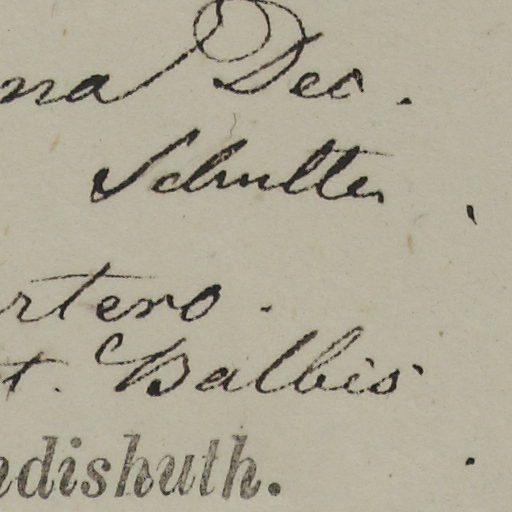 na Dec.
Schultes
rtero.
t. Balbis
ndishuth.